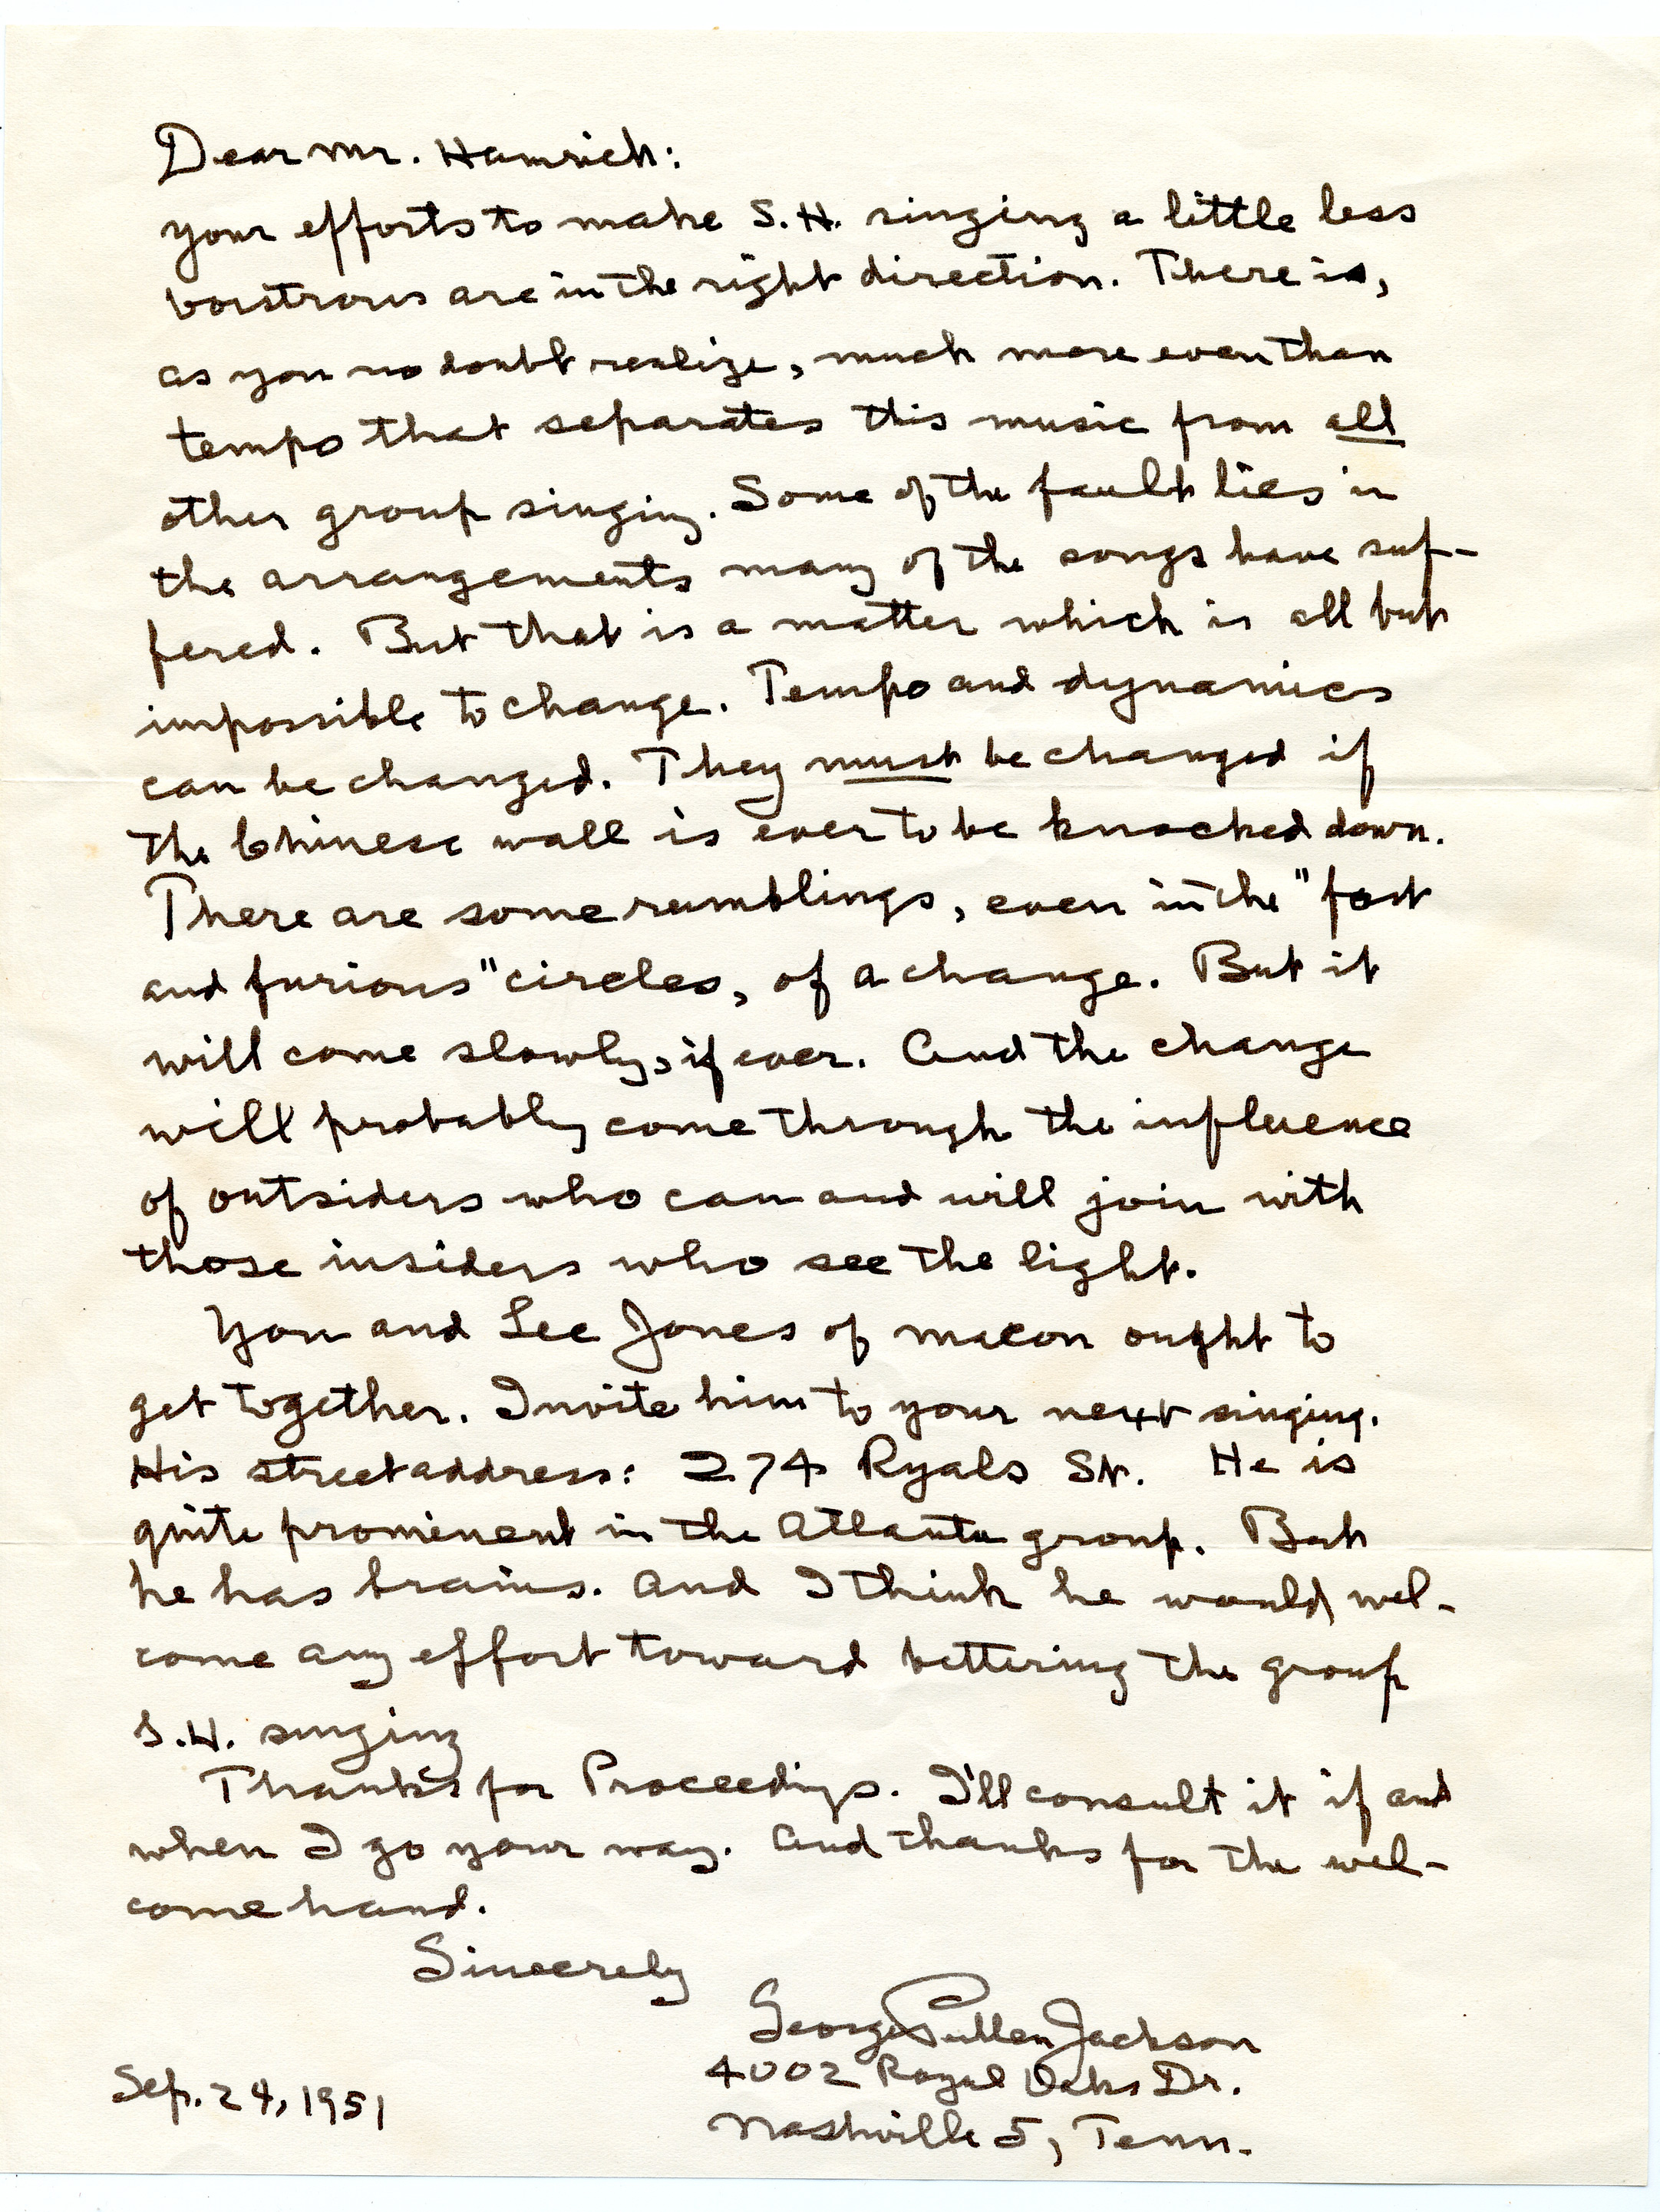 Dear Mr. Hamrick:
your efforts to make S.H. singing a little less
boistrous are in the right direction. There is,
as you no doubt realize, much more even than
tempo that separates this music from all
other group singing. Some of the fault lies in
the arrangements many of the songs have suf-
fered. But that is a matter which is all but
impossible to change. Tempo and dynamics
can be changed. They must be changed if
the Chinese wall is ever to be knocked down.
There are some rumblings, even in the "fast
and furious" circles, of a change. But it
will come slowly, if ever. And the change
will probably come through the influence
of outsiders who can and will join with
those insiders who see the light.
You and Lee Jones of Macon ought to
get together. Invite him to your next singing.
His street address: 274 Ryals St. He is
quite prominent in the Atlanta group. But
he has brains. And I think he would wel-
come any effort toward bettering the group
S.H. singing
Thanks for Proceedings. I'll consult it if and
when I go your way. And thanks for the wel-
come hand.
Sincerely
George Pullen Jackson
4002 Royal Oaks Dr.
Nashville 5, Tenn.
Sep. 24, 1951